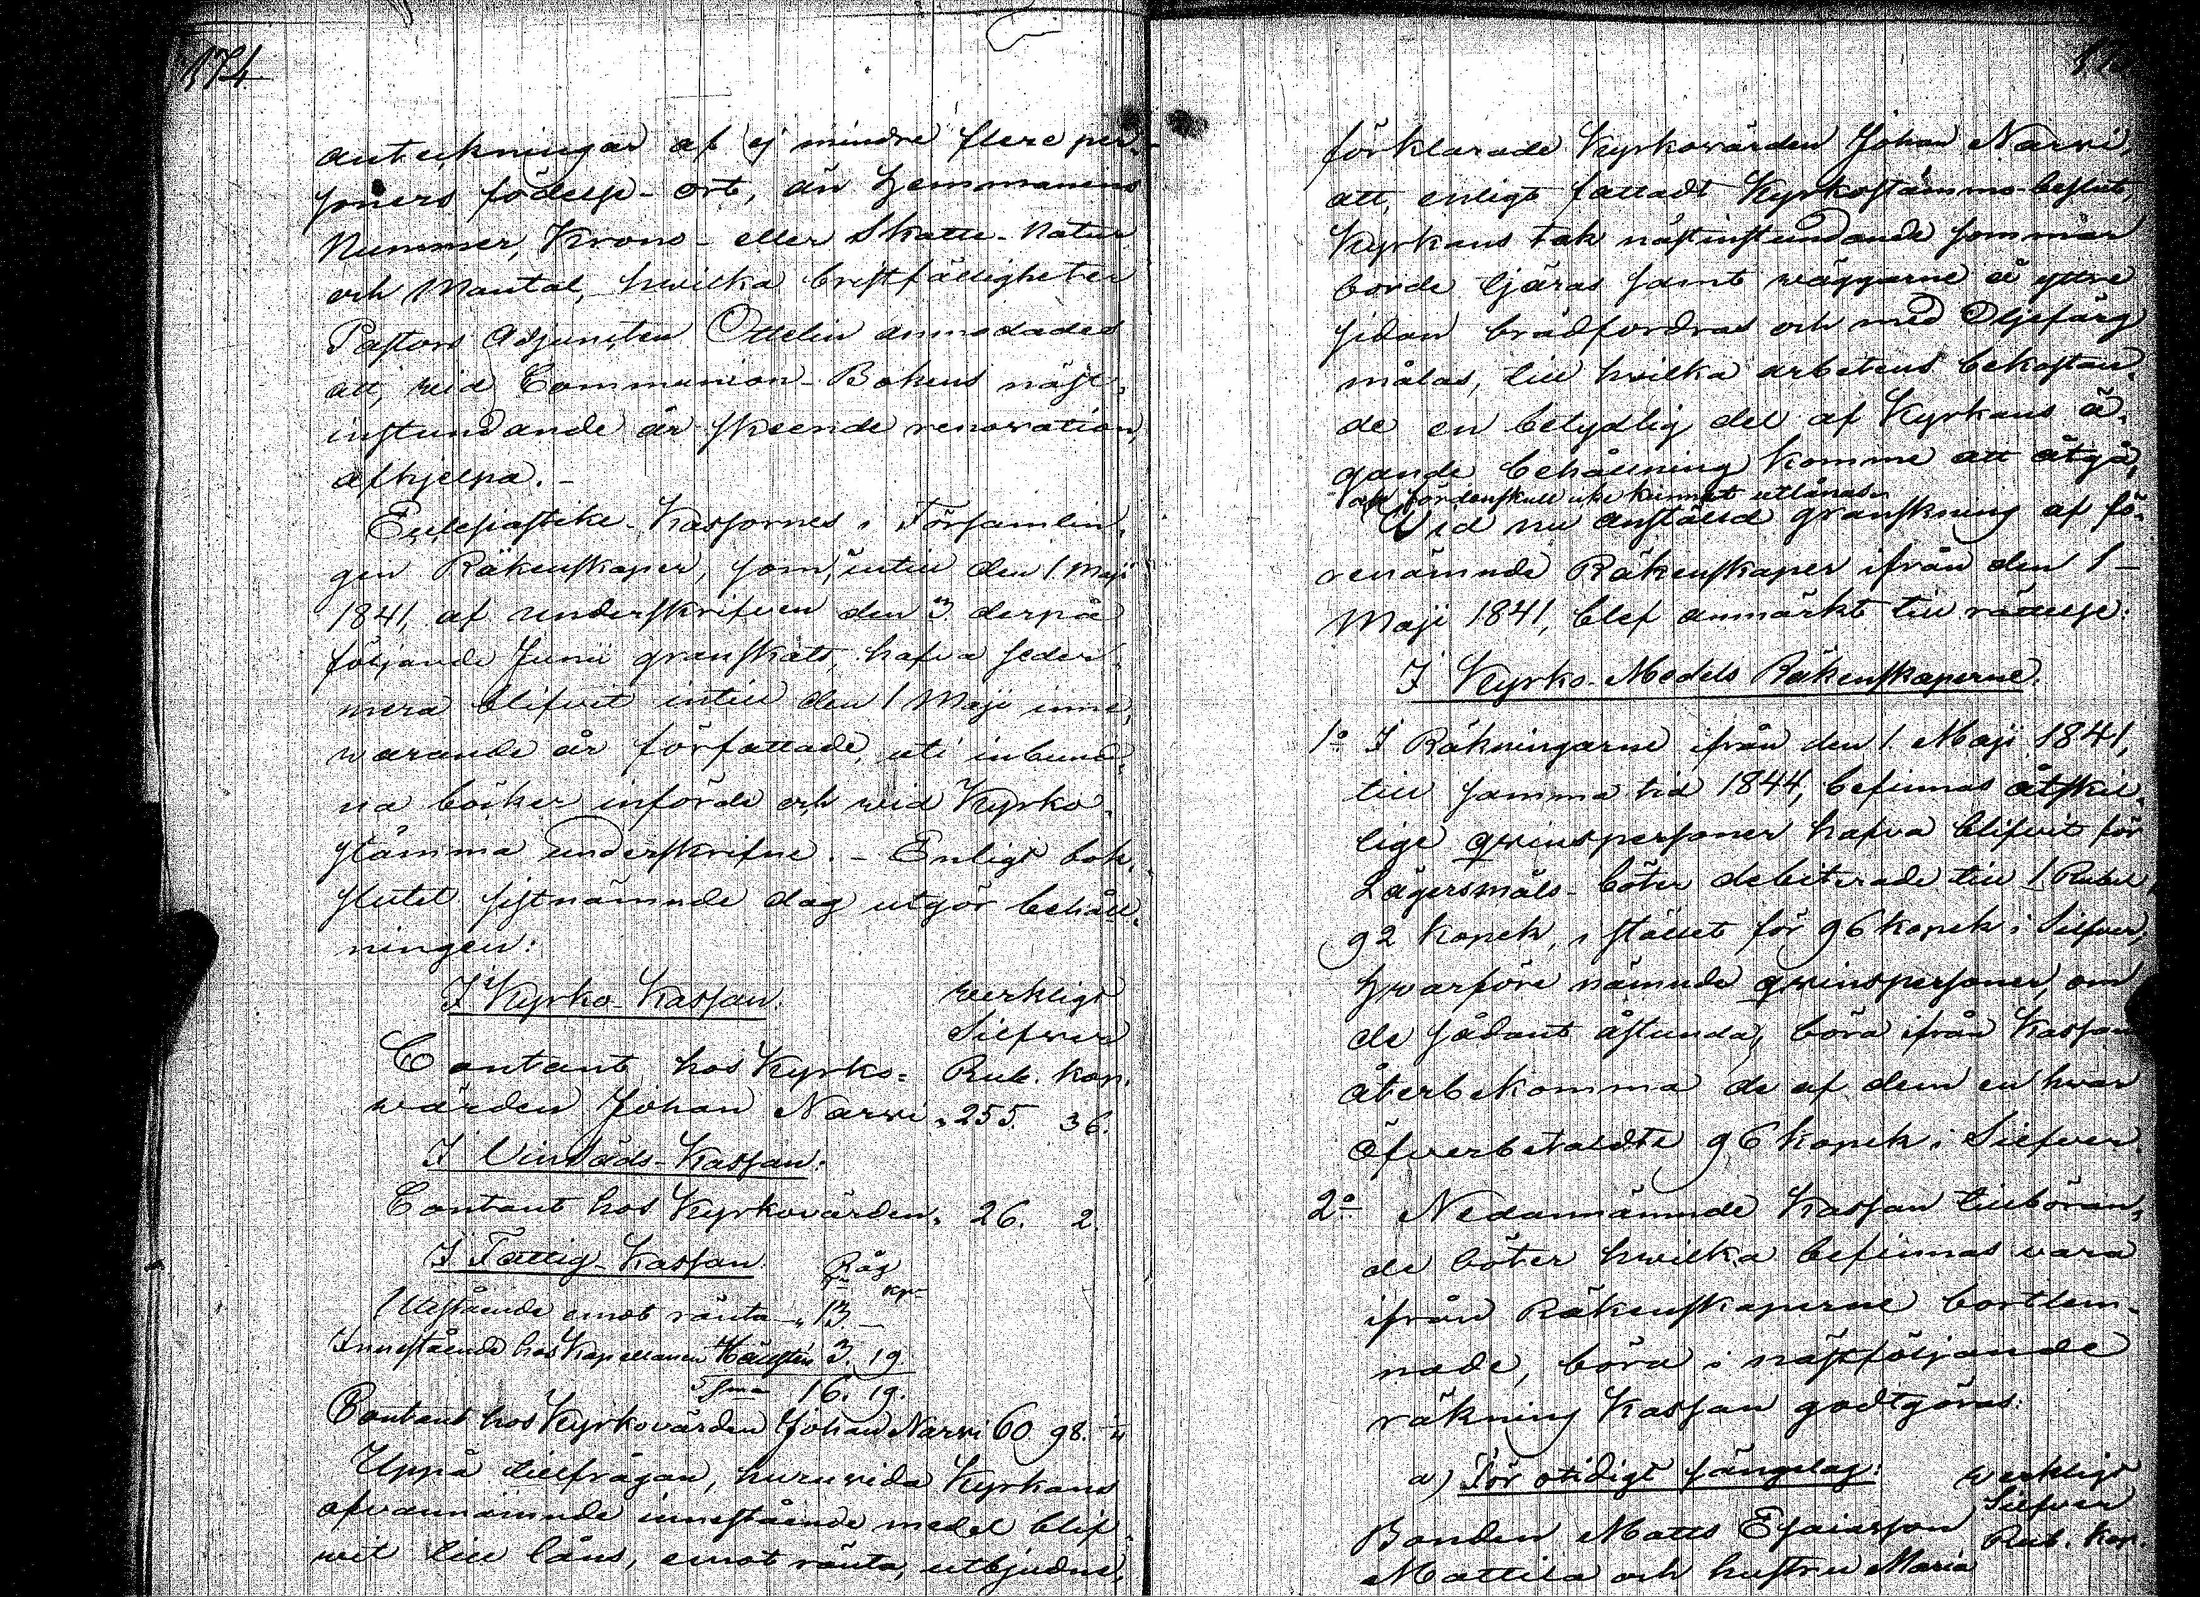 174.
anteckningar af ej mindre flere per-
soners födelse-ort, än hemmanens
Nummer, Krono- eller Skatte-Natur
och Mantal, hwilka bristfälligheter
Pastors Adjuncten Ottelin anmodades
att, wid Communion-Bokens näst-
instundande år skeende renovation,
afhjelpa. -
Ecclesiastike-Kassornes i Församlin-
gen Räkenskaper, som, intill den 1. Maji
1841, af underskrifven den 3. derpå
följande Junii granskats, hafva seder-
mera blifvit intill den 1 Maji inne-
warande år författade, uti inbund-
na böcker införde och wid Kyrko-
stämma underskrifne. - Enligt bok-
slutet sistnämnde dag utgör behåll-
ningen:
I Kyrko-Kassan. werkligt
Silfver
Contant hos Kyrko= Rub. kop.
wärden Johan Narwi „ 255. 36.
I Vinsäds-Kassan:
Contant hos Kyrkovärden „ 26. 2.
I Fattig-Kassan. Råg
kp.
Utestående emot ränta „ 13. —
Innestående hos Kapellanen Hällsten 3. 19
S:ma 16. 19.
Contant hos Kyrkovärden Johan Narwi 60 98.
Uppå tillfrågan, huruvida Kyrkans
ofvannämnde innestående medel blif-
wit till låns, emot ränta, utbjudne,
förklarade Kyrkovärden Johan Narwi,
att, enligt fattadt Kyrkostämmo-beslut,
Kyrkans tak nästinstundande sommar
borde tjäras samt wäggarne å yttre
sidan brädfordras och med Oljefärg
målas, till hvilka arbetens bekostan-
de en betydlig del af Kyrkans ä-
gande behållning komme att åtgå,
och fördenskull icke kunnat utlånas.
Wid nu anstäld granskning af fö-
renämnde Räkenskaper ifrån den 1
Maji 1841, blef anmärkt till rättelse:
I Kyrko-Medels Räkenskaperne.
1:o I Räkningarne ifrån den 1. Maji 1841,
till samma tid 1844, befinnas åtskil-
lige qwinspersoner hafva blifvit för
Lägersmåls-böter debiterade till 1 Rubel
92 kopek, i stället för 96 kopek i Silfver,
hwarföre nämnde qwinspersoner, om
de sådant åstunda, böra ifrån Kassan
återbekomma de af dem en hvar
öfverbetaldte 96 kopek i Silfver.
2:o Nedannämnde Kassan tillböran-
de böter hwilka befinnas vara
ifrån Räkenskaperne bortlem-
nade, böra i nästföljande
räkning Kassan godtgöras:
a) För otidigt sänglag: werkligt
Silfver
Bonden Matts Esaiasson Rub. Kop.
Mattila och hustru Maria